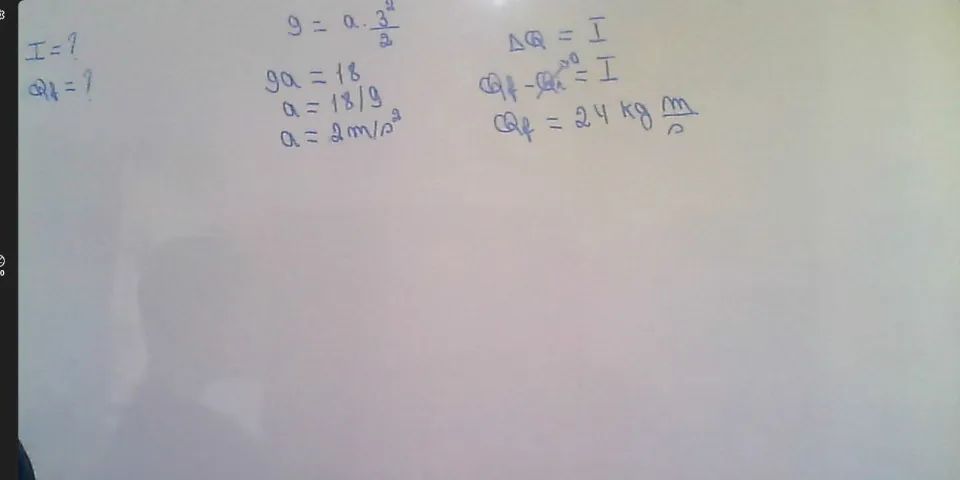 I = ?
Qf = ?
9 = a · 3²/2
9a = 18
a = 18/9
a = 2m/s²
ΔQ = I
Qf - Qi⁰ = I
Qf = 24 kg m/s